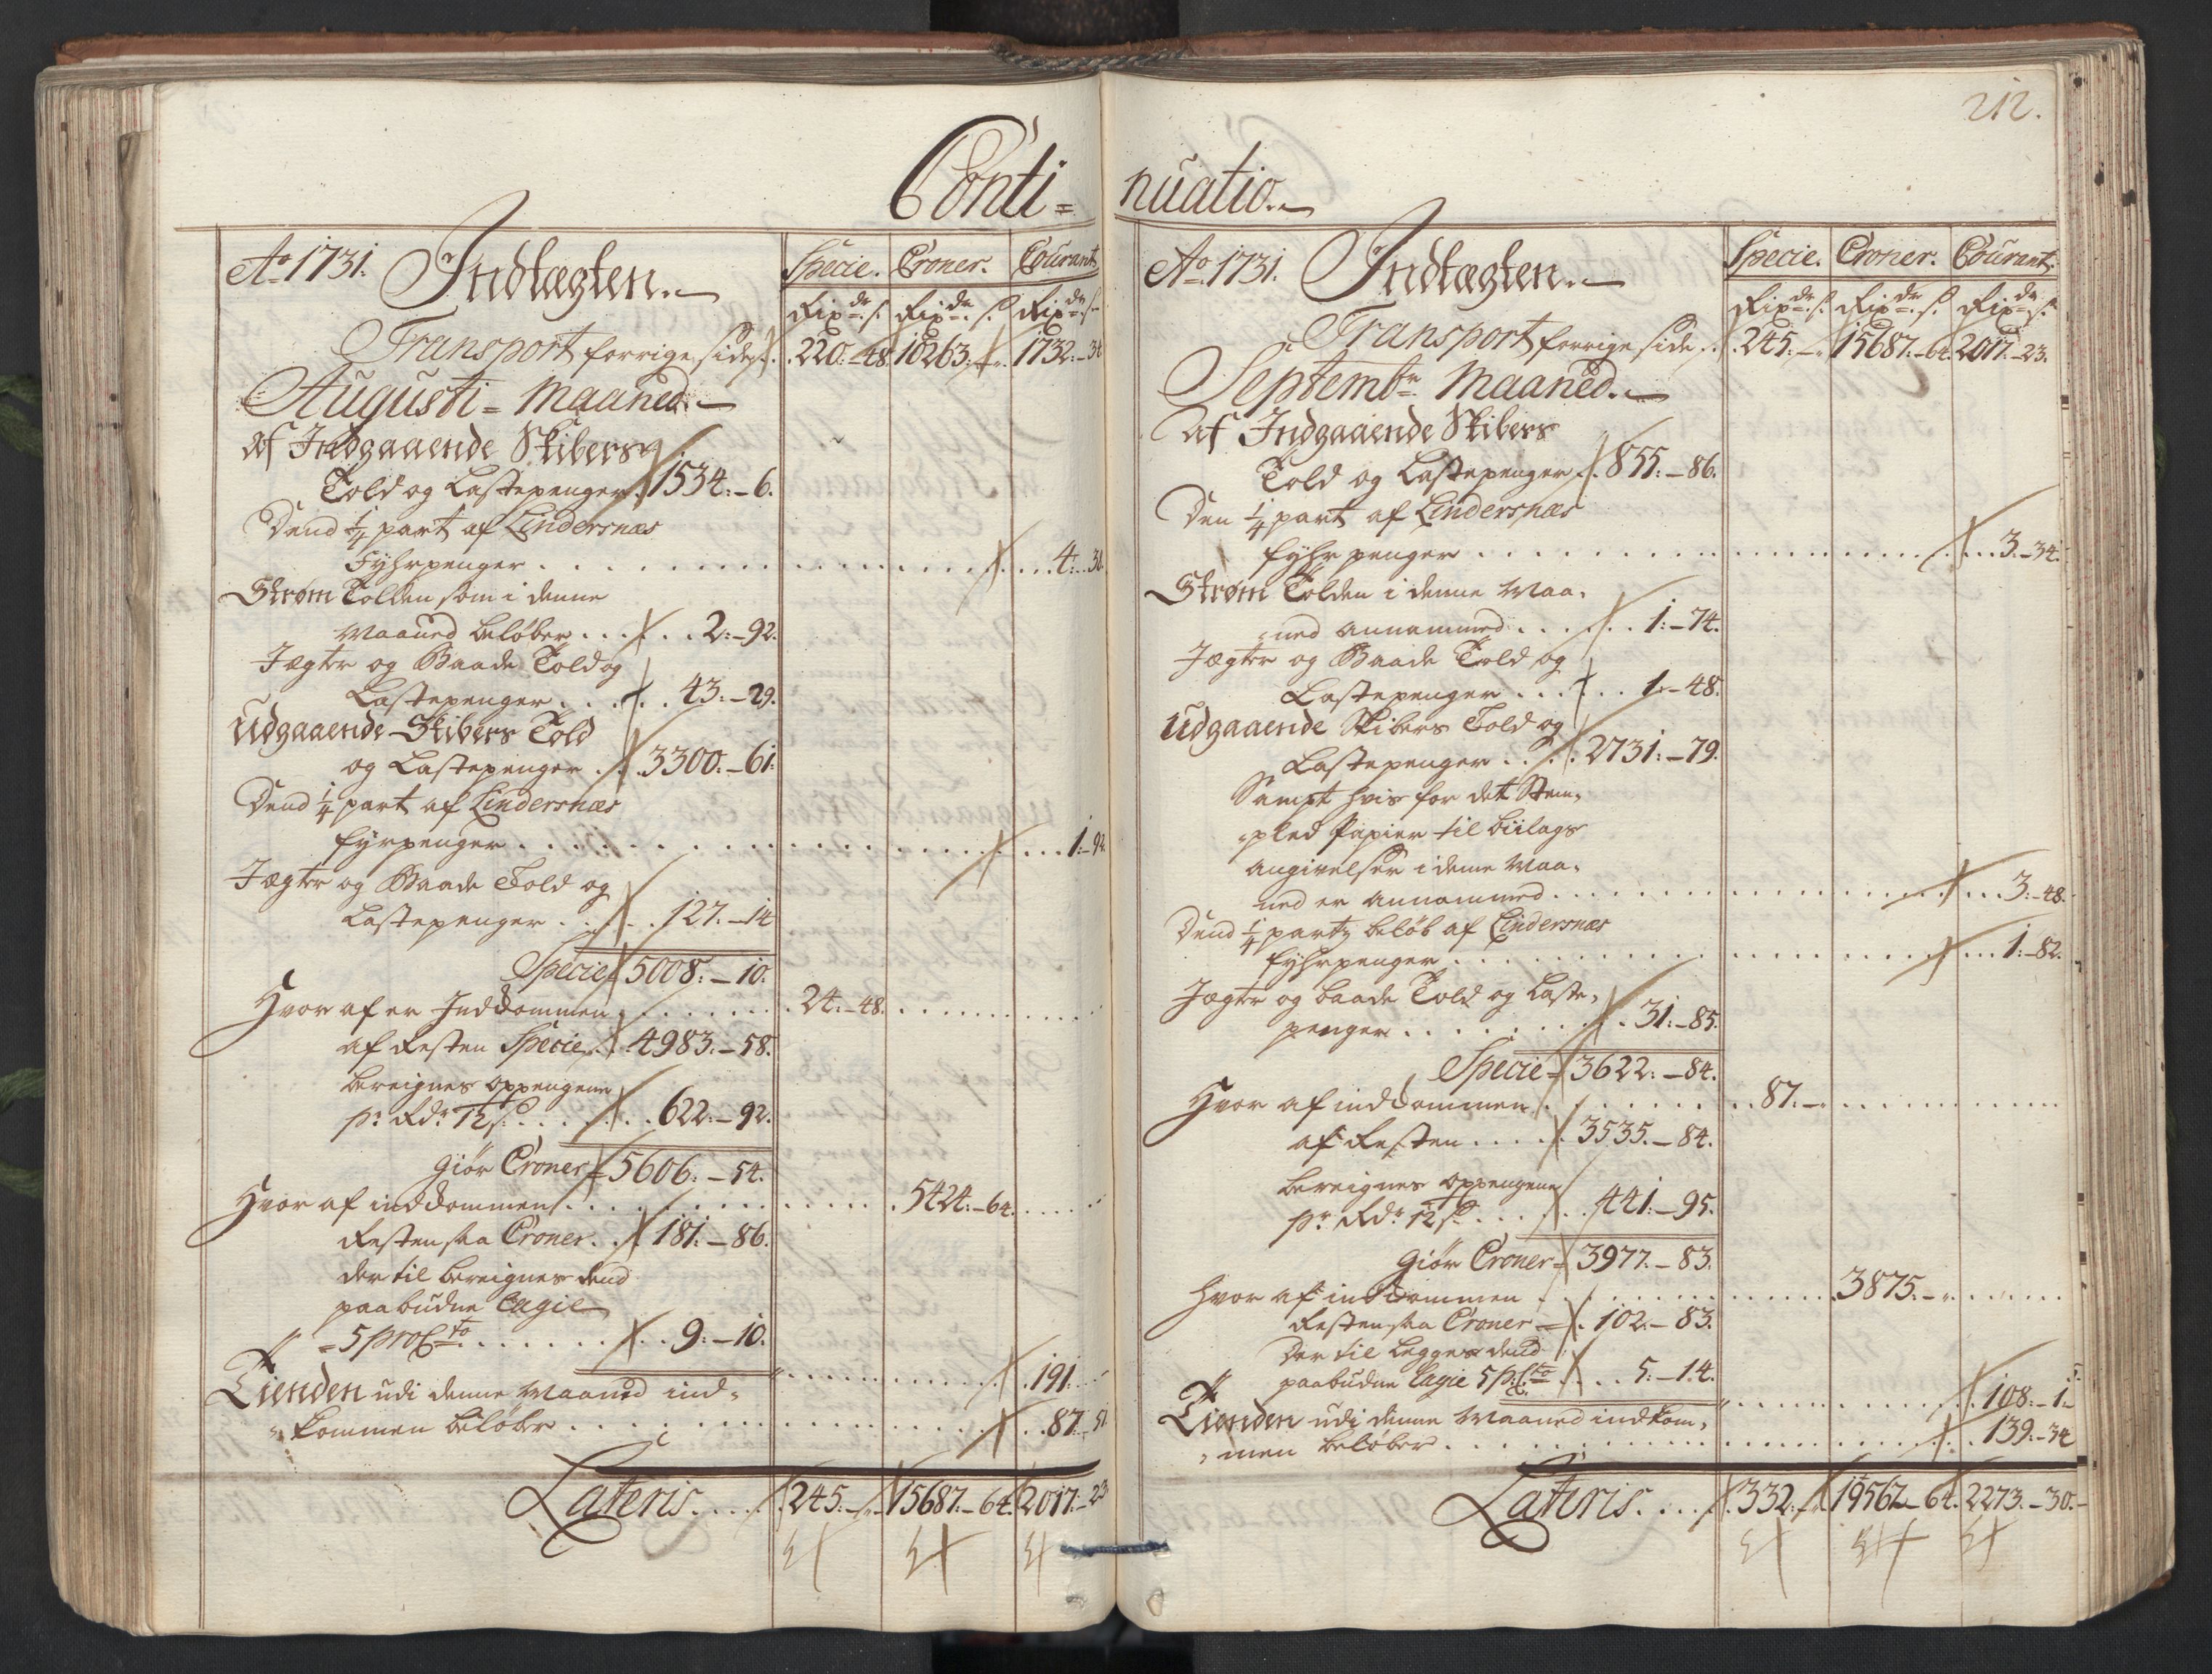 212.
Conti=
nuatio.
Ao 1731. Indtægten.
Specie. Croner. Courant
Rixdr. s. Rixdr. s. Rixdr. s.
Transport forrige side. 220.-48. 10263. 1732.-3
Augusti= Maaned.
Af Indgaaende Skibers
Told og Lastepenger. 1534.-6.
Dend 1/4 part af Lindersnæs
Fyhrpenger . . . 4.
Strøm Tolden som i denne
Maaned beløber . . . 2.-92.
Jægter og Baade Told og
Lastepenger . . . 43.-29.
Udgaaende Skibers Told
og Lastepenger . . 3300.-61.
Dend 1/4 part af Lindersnæs
fyrpenger . . . 1.-9
Jægter og Baade Told og
Lastepenger . . . 127.-14
Specie 5008.-10.
Hvor af er Indkommen . . . 24.-48.
af Resten Specie . . 4983.-58.
bereignes oppengene
pr. Rdr. 12 s. . . . 622.-92.
giør Croner 5606.-54.
Hvor af indkommen . . . 5424.-64.
Resten saa Croner . . 181.-86.
der til bereignes dend
paabudne Lagie
=5 pro Cto . . . 9.-10.
191.
Tienden udi denne Maaned ind=
kommen beløber . . . 87.-5
Lateris . . . 245.- 15687.-64. 2017.-23
Ao 1731. Indtægten.
Specie. Croner. Courant.
Rixdr. s. Rixdr. s. Rixdr. s.
Transport forrige side . 245.- 15687.-64. 2017.-23.
Septembr. Maaned.
Af Indgaaende Skibers
Told og Lastepenger . 855.-86.
Den 1/4 part af Lindersnæs
fyhrpenger . . . 3.-34.
Strøm Tolden i denne Maa=
ned annammed . . . 1.-74.
Jægter og Baade Told og
Lastepenger . . . 1.-48.
Udgaaende Skibers Told og
Lastepenger . . . 2731.-79.
Sampt hvis for det Stem=
pled Papier til biilags
angivelser i denne Maa=
ned er annammed . . . 3.-48.
Dend 1/4 parts beløb af Lindersnæs
fyhrpenger . . . 1.-82.
Jægter og baade Told og Laste=
penger . . . 31.-85.
Specie= 3622.-84.
Hvor af indkommen . . . 87.-
af Resten . . . 3535.-84.
bereignes oppengene
pr. Rdr. 12 s. . . . 441.-95.
giør Croner= 3977.-83.
Hvor af indkommen . . . 3875.-
Resten saa Croner= 102.-83.
Der til legges dend
paabudne Lagie 5 p. Cto . . 5.-14.
108.-1.
Tienden udi denne Maaned indkom=
men beløber . . . 139.-34
Lateris . . . 332.- 19562.-64. 2273.-30.